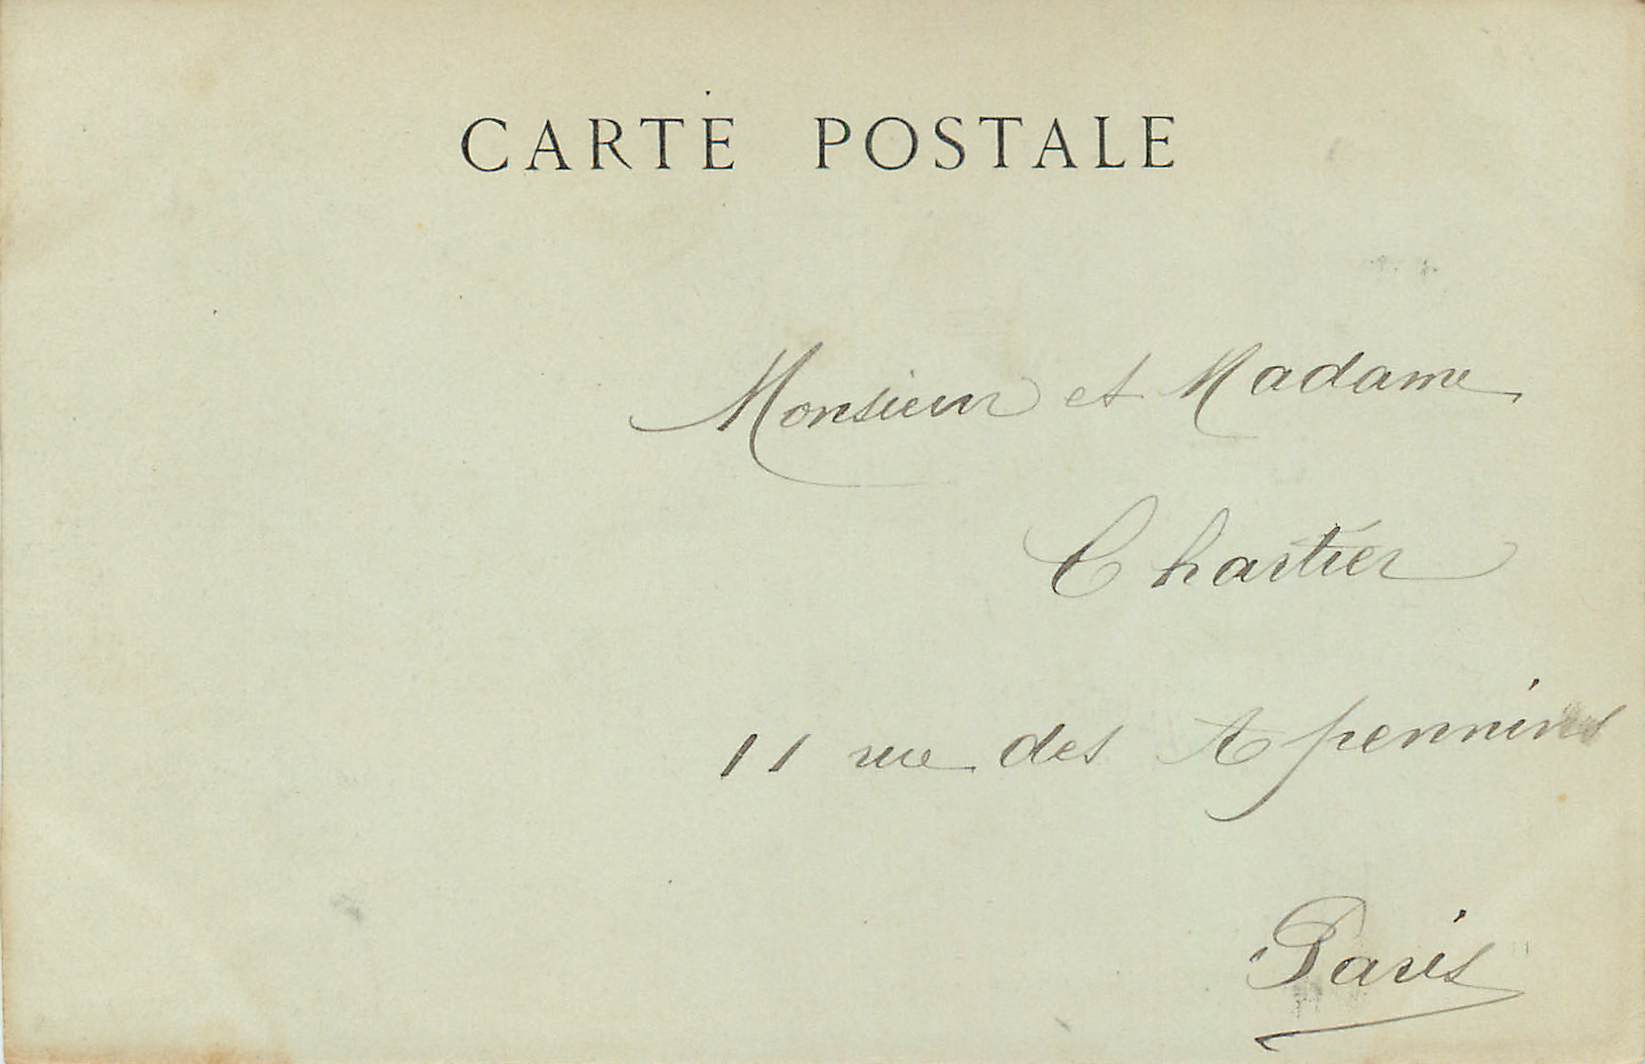 CARTE POSTALE
Monsieur et Madame
Chartier
11 rue des Apennins
Paris